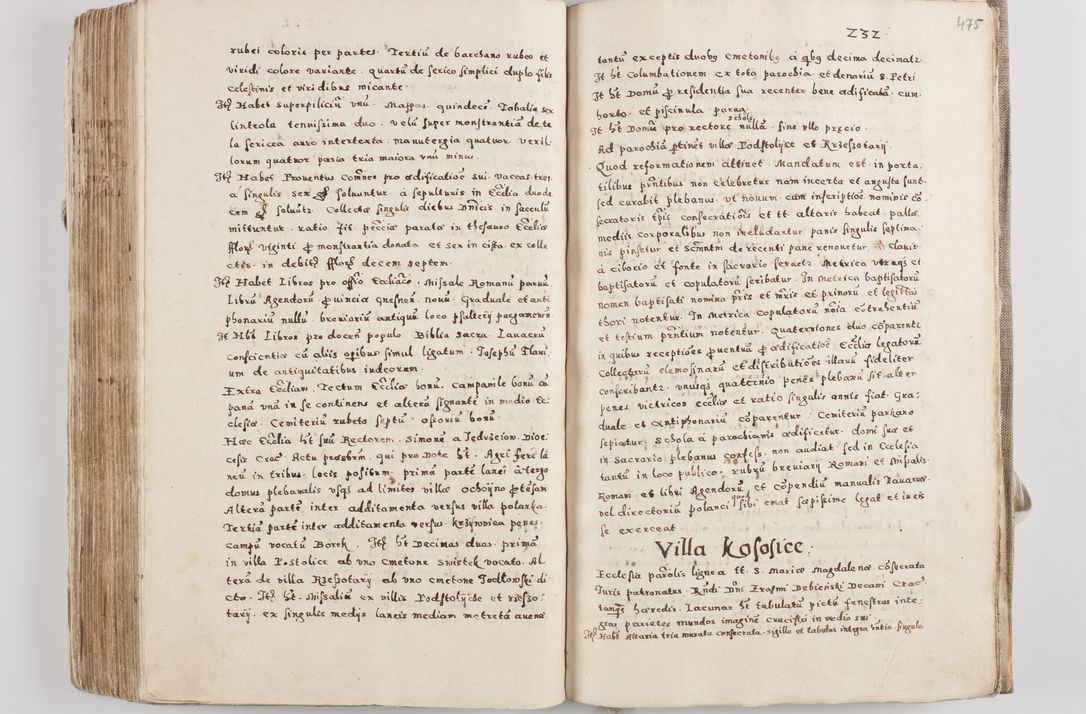 rubei coloris per partes. Tertiũ de barchano rubeo et
viridi colore variante. quartũ de serico simplici duplo filis
celestinis et viridibus micante.
Itẽ Habet superpiliciũ vnũ. Mappas quindecẽ. Tobalia sex
linteola tenuissima duo. velũ super monstrantiã de te
la sericea auro intertexta. manutergia quatuor. vexil
lorum quatuor paria tria maiora vnũ minus.
Itẽ Habet Prouentus comnes pro ædificatiõe sui. vaccas tres
a singulis sex soluuntur. a sepulturis in Ecclia duode
cem soluũtr Collectæ singulis diebus Dnicis in sacculũ
mittuntur. ratio fit. peccia parata in thesauro Eccliæ
florẽ viginti pro monstrantia donata et sex in cista ex colle
ctis. in debitis florẽ decem septem.
Itẽ Habet Libros pro offo Ecclιaco. Missale Romanũ paruũ.
Librũ Agendorũ Prouincia gnesneñ. nouũ. Graduale et anti
phonariũ nullũ. breuiariũ antiquũ loco psalterij pargameneũ
It Habt Libros pro docen populo. Biblia sacra. Lauacrũ
conscientiæ cũ aliis opibus simul ligatum. Josephũ Flaui
um de antiquitatibus iudeorem.
Extra Eccliam. Tectum Ecclie bonũ. Campanile bonũ cã
panã vnã in se continens et alterã signantẽ in medio Ec
clesiæ. Cemiteriũ rubeto septũ. ossoriũ bonũ.
Hæc Ecclia ht suũ Rectorem. Simonẽ a Jedrzeiow. Dioe
cesis Crac. Actu præsbrm. qui pro Dote ht. Agri fere la
neũ in tribus locis positum. primã partẽ lanei à tergo
domus plebanalis vsq ad limites villæ ochoyno protensam
Alterã partẽ inter additamenta versus villa polanka.
Tertiã partẽ inter additamenta versus krzywnica penes
campũ vocatũ Borek. Itẽ ht Decimas duas. primã
in villa Postolice ab vno cmetone Swistek vocato. Al
terã de villa Rzeszotary ab vno cmetone Jodłowski di
cto. Itẽ ht. Missaliũ ex villis Podstolycze et rzeszo
tarij. ex singulis medijs laneis mediam metretã auenæ.
232
475
tantũ exceptis duobꝫ cmetonibꝫ à qbꝫ decima decimatr
It ht Columbationem ex tota parochia et denariũ S. Petri
It ht Domũ pro residentia sua recenter bene ædificatã. cum
horto et piscinula parua.
scholæ
It ht Domũ pro rectore nullã. sine vllo precio.
Ad parochiã ptinẽt villæ Podstolyce et Krzeszotarij.
Quod reformationem attinet. Mandatum est. in porta
tilibus prñtibus non celebretur nam incerta et angusta sunt.
sed curabit plebanus. vt nouum cum inscriptiõe nominis cõ
secratoris tpis consecratiõis et tt altaris habeat. pallæ
mediis corporalibus non includantur. panis singulis septima
nis pinsetur et scmñtm de recenti pane renouetur. Clauis
à ciborio et fonte in sacrario seruetr Metrica vtraqꝫ et
baptisatorũ et copulatorũ scribatur. In metrica baptisatorũ
nomen baptisati nomina pris et mris et prinorũ et legittĩ
thori notentur. In Metrica Copulatorũ noia cõtrahentiũ
et testium prñtium notentur. Quaterniones duo cõparentr
in quibus receptiões prouentuũ pro ædificatiõe Eccliæ legatorũ
Collectarũ elemosinarũ et distributiões illarũ fideliter
conscribantr. vnusqꝫ quaternio penes plebanũ sit alter
penes victricos ecclie et ratio singulis annis fiat. Gra
duale et Antiphonariũ cõparentur. Cemiteriũ parkano
sepiatur. Schola à parochianis ædificetur. domi suæ et
in Sacrario plebanus confess. non audiat sed in Ecclesia
tantũ in loco publico. rubrũ breuiarij Romani et Missalis
Romani et libri Agendorũ et cõpendiũ manualis Nauarræ
quod
vel directoriũ polanci sibi emat sæpissime legat et in eis
se exerceat
Villa Kososice.
Ecclesia parolis lignea tt. S. Mariæ Magdalenæ cõsecrata
Juris patronatus Rudi Dni Erasmi Debienski Decani Crac
tanqꝫ hæredis. Lacunar ht tabulatũ pictũ fenestras inte
gras parietes mundos imaginẽ Crucifixi in medio sui.
Itẽ Habt Altaria tria murata consecrata. sigillo et tabulas integra hntia. singula